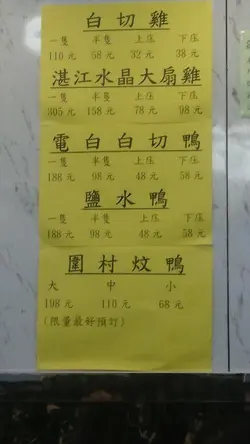 白切雞
一隻 半隻 上庄 下庄
110元 58元 32元 38元
湛江水晶大扇雞
一隻 半隻 上庄 下庄
305元 158元 78元 98元
電白白切鴨
一隻 半隻 上庄 下庄
188元 98元 48元 58元
鹽水鴨
一隻 半隻 上庄 下庄
188元 98元 48元 58元
圍村炆鴨
大 中 小
198元 110元 68元
(限量最好預訂)